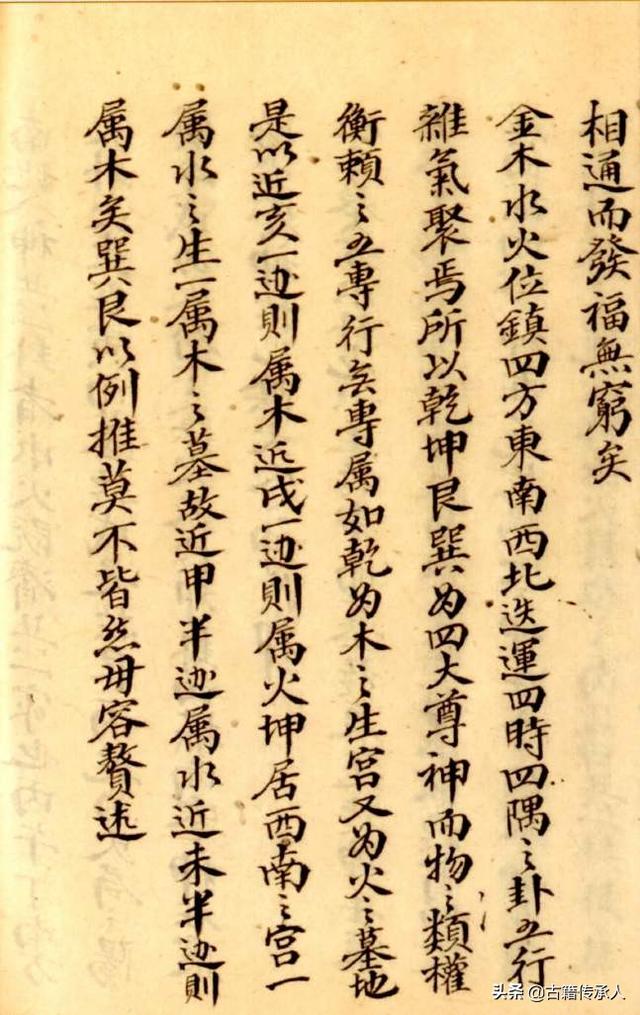 相通而發福無窮矣
金木水火位鎮四方東南西北迭運四時四隅之卦五行
雜氣聚焉所以乾坤艮巽为四大尊神而物之類權
衡賴之五專行無專属如乾为木之生宮又为火之墓地
是以近亥一边則属木近戌一边則属火坤居西南之宮一
属水之生一属木之墓故近甲半边属水近未半边則
属木矣巽艮以例推莫不皆然毋容贅述
头条 @古籍传承人